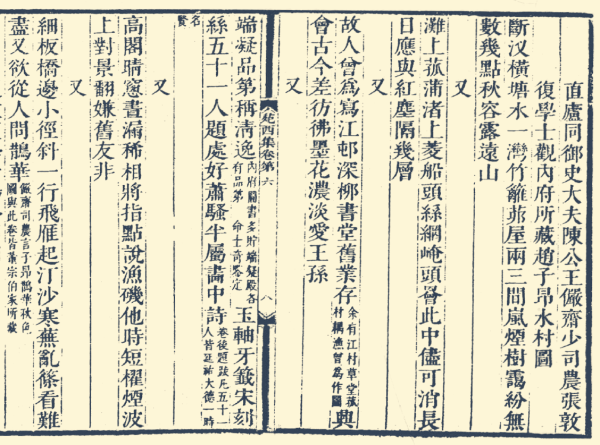 直廬同御史大夫陳公王儼齋少司農張敦
復學士觀内府所藏趙子昂水村圖
斷汊橫塘水一灣竹籬茆屋兩三間嵐煙樹靄紛無
數幾點秋容露遠山
又
灘上菰蒲渚上菱船頭絲網崦頭罾此中儘可消長
日應與紅塵隔幾層
又
故人曾爲寫江邨深栁書堂舊業存余有江村草堂菰村耦漁曾爲作圖興
會古今差彷彿墨花濃淡愛王孫
又
苑西集卷第六 八
端凝品第稱淸逸内府圖書多貯端凝殿各有品第 命士奇鑒定玉軸牙籤宋刻
絲五十一人題處好蕭騷半屬畵中詩卷後題跋凡五十一人皆延祐大德一時
名賢
又
高閣晴窻晝漏稀相將指點說漁磯他時短櫂煙波
上對景翻嫌舊友非
又
細板橋邊小徑斜一行飛雁起汀沙寒蕪亂篠看難
盡又欲從人問鵲華儼齋司農言子昂鵲華秋色圖與此卷皆董宗伯家所藏